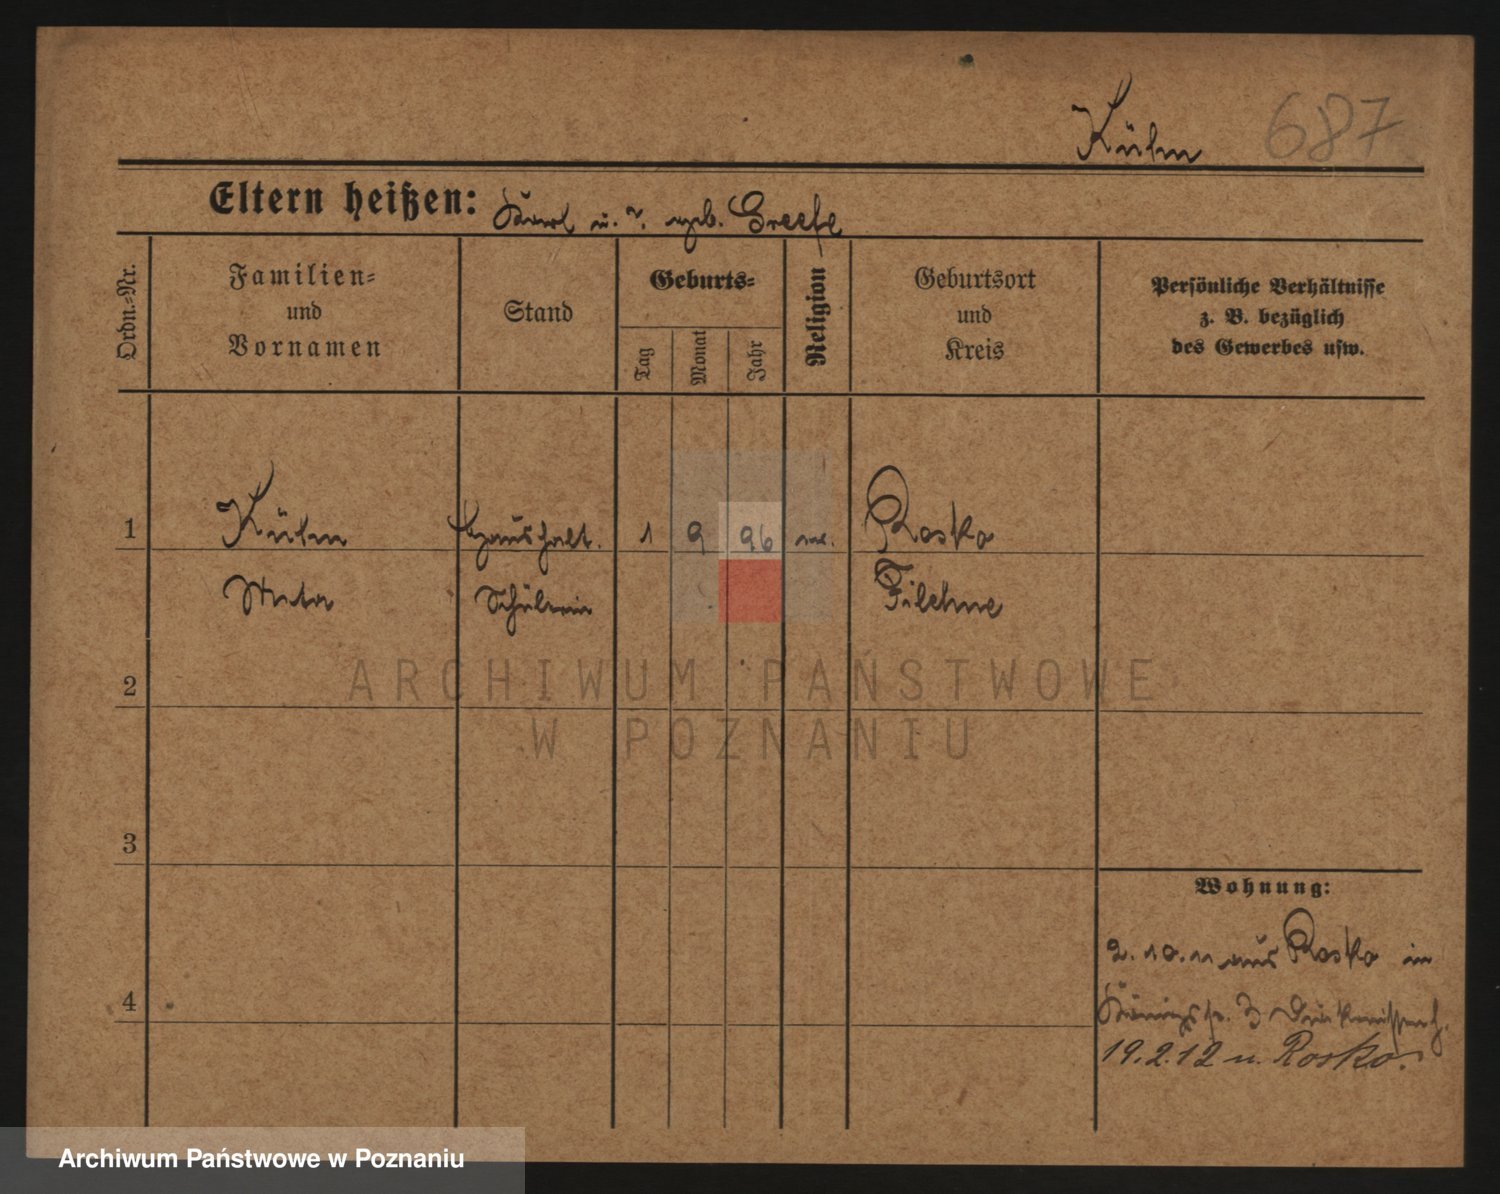 Kühn 687
Eltern heißen: Karl u. ? geb. Greefe
Ordn.=Nr.
Familien=
und
Vornamen
Stand
Geburts=
Tag
Monat
Jahr
Religion
Geburtsort
und
Kreis
Persönliche Verhältnisse
z. B. bezüglich
des Gewerbes usw.
1 Kühn Haushalt. 1 9 96 ev. Rosko
Meta Schülerin Filehne
ARCHIWUM PAŃSTWOWE
W POZNANIU
2
3
Wohnung:
2.10.11 aus Rosko in
4
Königstr. 3
19.2.12 n. Rosko.
Archiwum Państwowe w Poznaniu